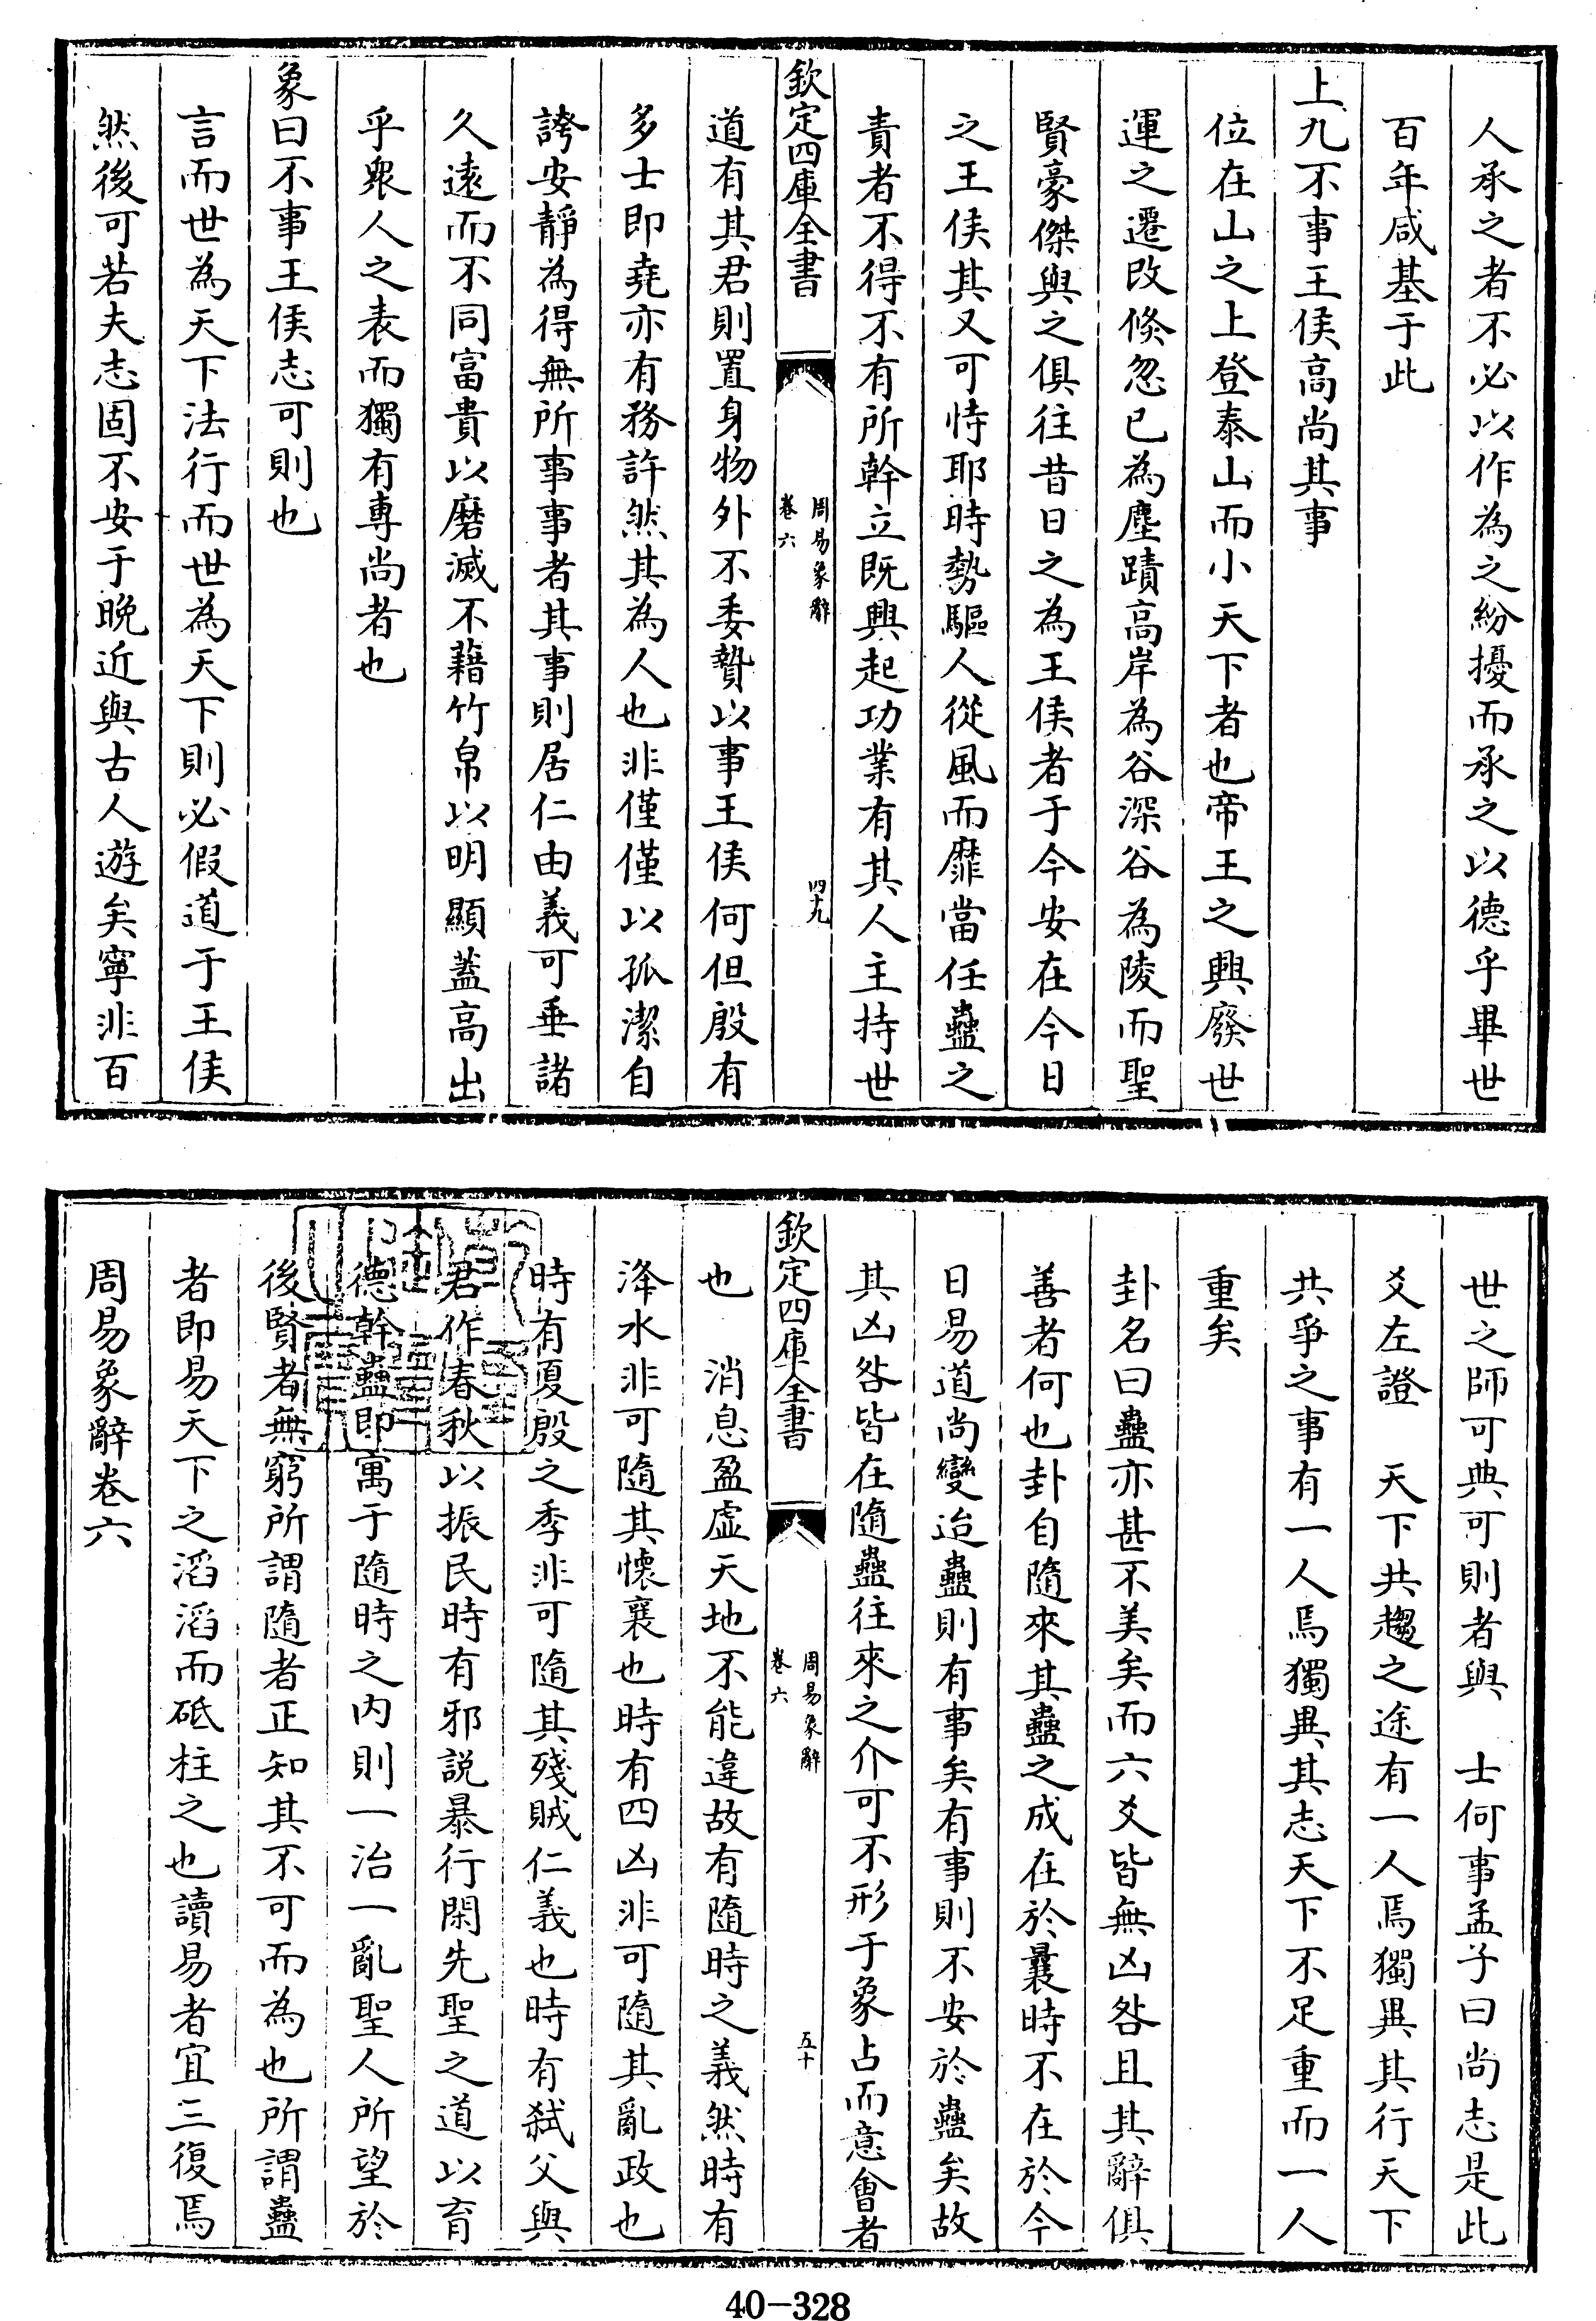 人承之者不必以作為之紛擾而承之以德乎畢世
百年咸基于此
上九不事王侯高尚其事
位在山之上登泰山而小天下者也帝王之興廢世
運之遷改倏忽已為塵蹟高岸為谷深谷為陵而聖
賢豪傑與之俱往昔日之為王侯者于今安在今日
之王侯其又可恃耶時勢驅人從風而靡當任蠱之
責者不得不有所幹立既興起功業有其人主持世
欽定四庫全書
周易象辭
卷六
四十九
道有其君則置身物外不委贄以事王侯何但殷有
多士即堯亦有務許然其為人也非僅僅以孤潔自
誇安靜為得無所事事者其事則居仁由義可垂諸
久遠而不同富貴以磨滅不藉竹帛以明顯蓋高出
乎衆人之表而獨有專尚者也
象曰不事王侯志可則也
言而世為天下法行而世為天下則必假道于王侯
然後可若夫志固不安于晚近與古人遊矣寧非百
世之師可典可則者與 士何事孟子曰尚志是此
爻左證 天下共趨之途有一人焉獨異其行天下
共爭之事有一人焉獨異其志天下不足重而一人
重矣
卦名曰蠱亦甚不美矣而六爻皆無凶咎且其辭俱
善者何也卦自隨來其蠱之成在於曩時不在於今
日易道尚變迨蠱則有事矣有事則不安於蠱矣故
其凶咎皆在隨蠱往來之介可不形于象占而意會者
欽定四庫全書
周易象辭
卷六
五十
也 消息盈虛天地不能違故有隨時之義然時有
洚水非可隨其懷襄也時有四凶非可隨其亂政也
時有夏殷之季非可隨其殘賊仁義也時有弒父與
君作春秋以振民時有邪説暴行閑先聖之道以育
德幹蠱即寓于隨時之内則一治一亂聖人所望於
後賢者無窮所謂隨者正知其不可而為也所謂蠱
者即易天下之滔滔而砥柱之也讀易者宜三復焉
周易象辭卷六
40-328